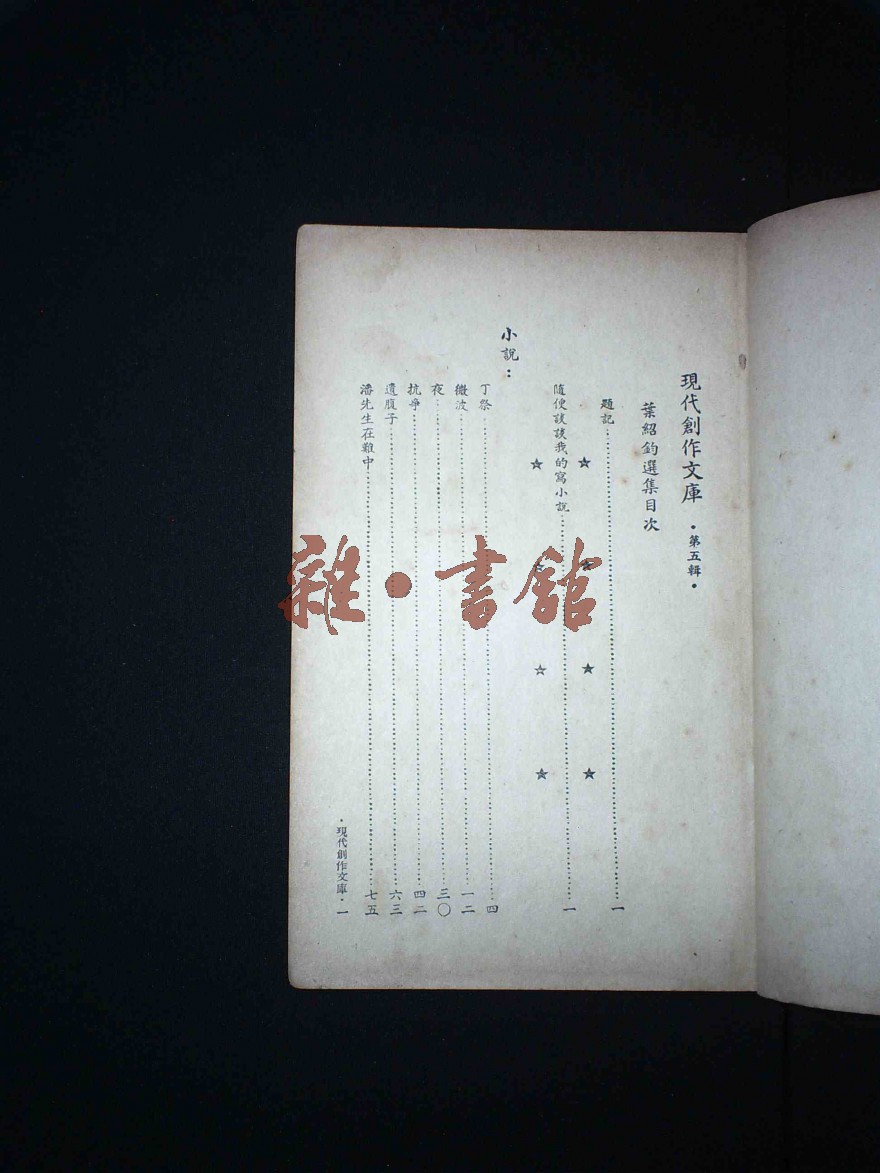 現代創作文庫 •第五輯•
葉紹鈞選集目次
題記……一
隨便談談我的寫小說……一
小說：
丁祭……四
微波……一二
夜……三〇
抗爭……四二
遺腹子……六三
潘先生在難中……七五
•現代創作文庫•一
雜•書館